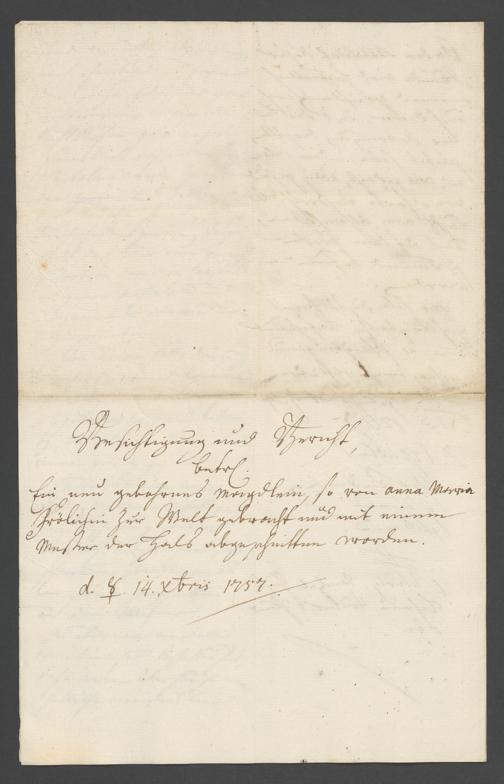 Besichtigung und Bericht,
betrf.
Ein neu gebohrnes Mägdlein, so von anna Maria
Frölichin zur Welt gebracht und mit einem
Messer der Hals abgeschnitten worden.
d. ☿ 14. Xbris 1757.